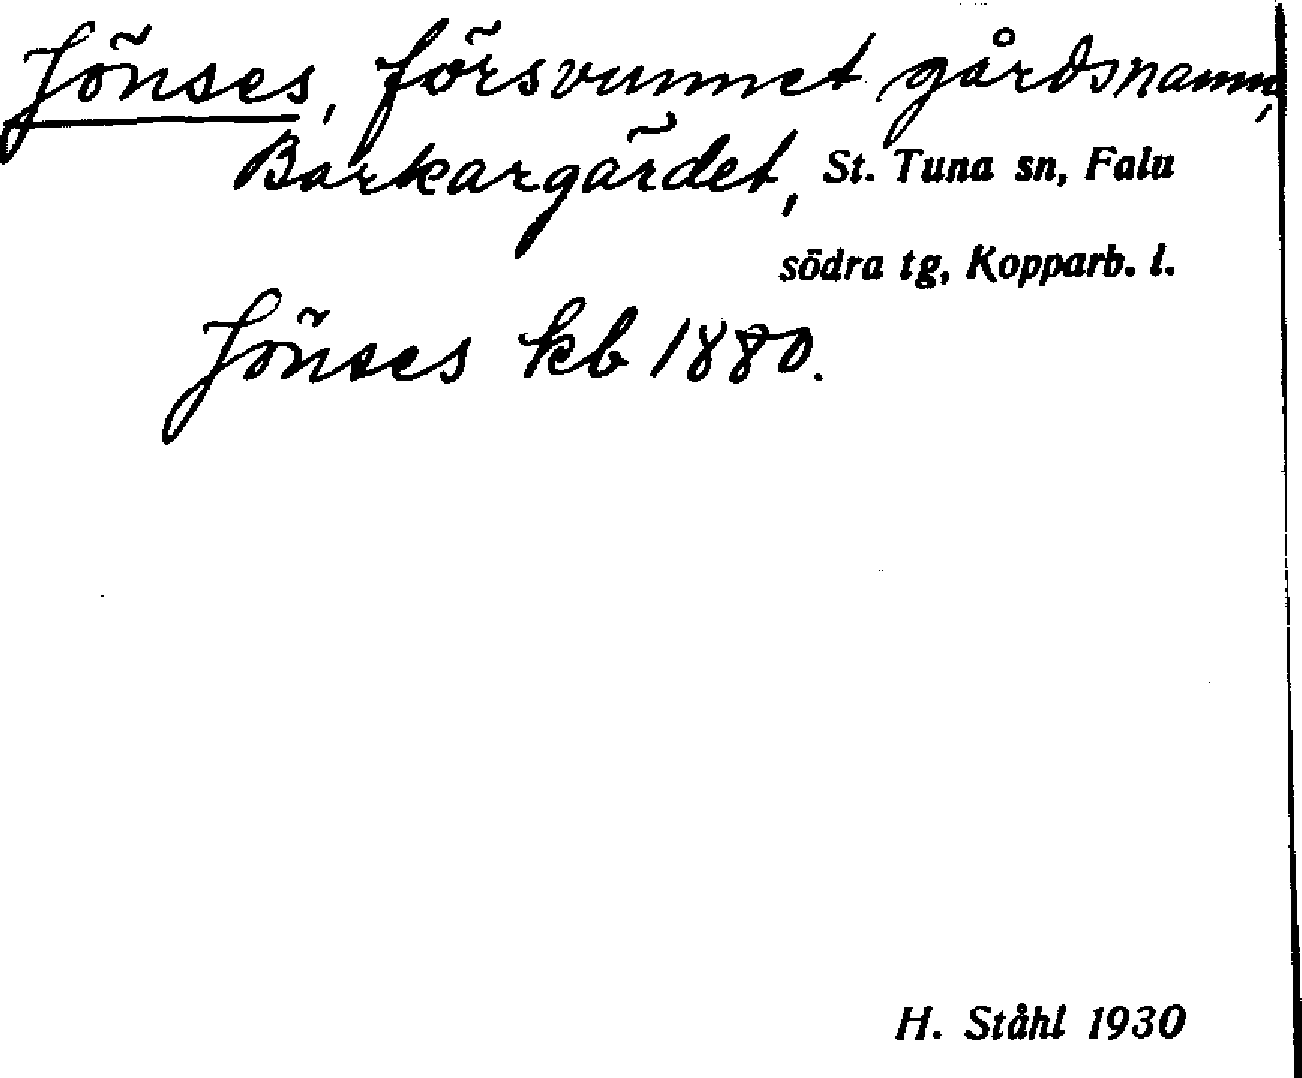 Jönses, försvunnet gårdsnamn,
Barkargärdet, St. Tuna sn, Falu
södra tg, Kopparb. l.
Jönses kb 1880.
H. Ståhl 1930